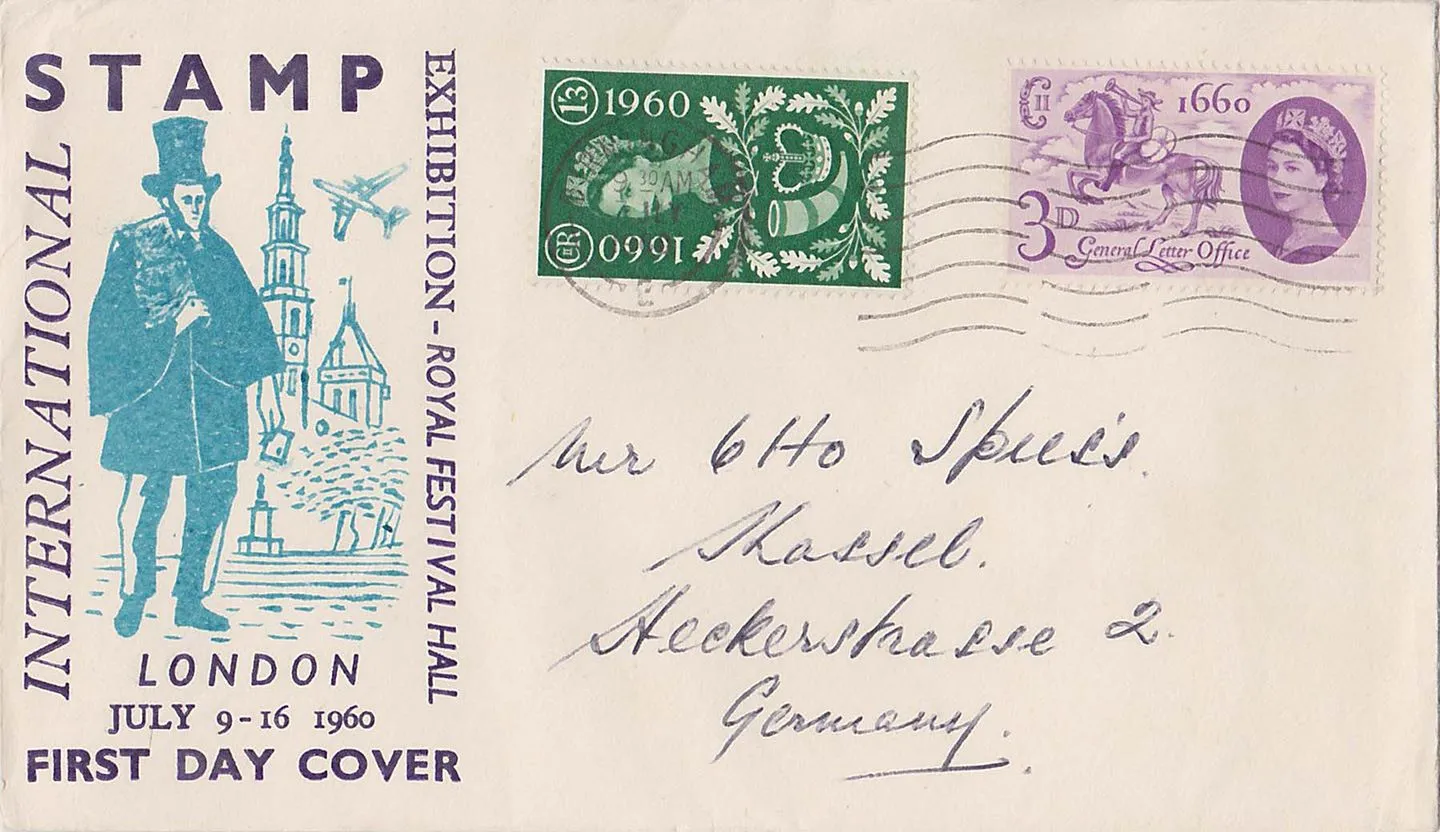 STAMP
INTERNATIONAL
EXHIBITION - ROYAL FESTIVAL HALL
LONDON
JULY 9-16 1960
FIRST DAY COVER
1/3
1960
ER
1660
9.30AM
C II
1660
3D
General Letter Office
Mr Otto
Kassel.
Heckerstrasse 2.
Germany.